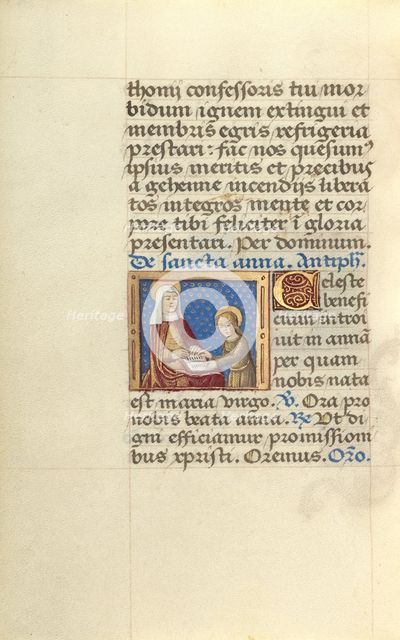 thonij confessoris tui mor-
bidum ignem extingui et
membris egris refrigeria
prestari: fac nos quesum˜
ipsius meritis et precibus
a gehenne incendijs libera
tos integros mente et cor
pore tibi feliciter ĩ gloria
presentari. Per dominum.
De sancta anna. Antiph̃.
Celeste
benefi
cium introi
uit in annã
per quam
nobis nata
est maria virgo. ℣. Ora pro
nobis beata anna. ℟ Vt di
gni efficiamur promission
bus xpristi. Oremus. Orõ.
heritage
Heritage